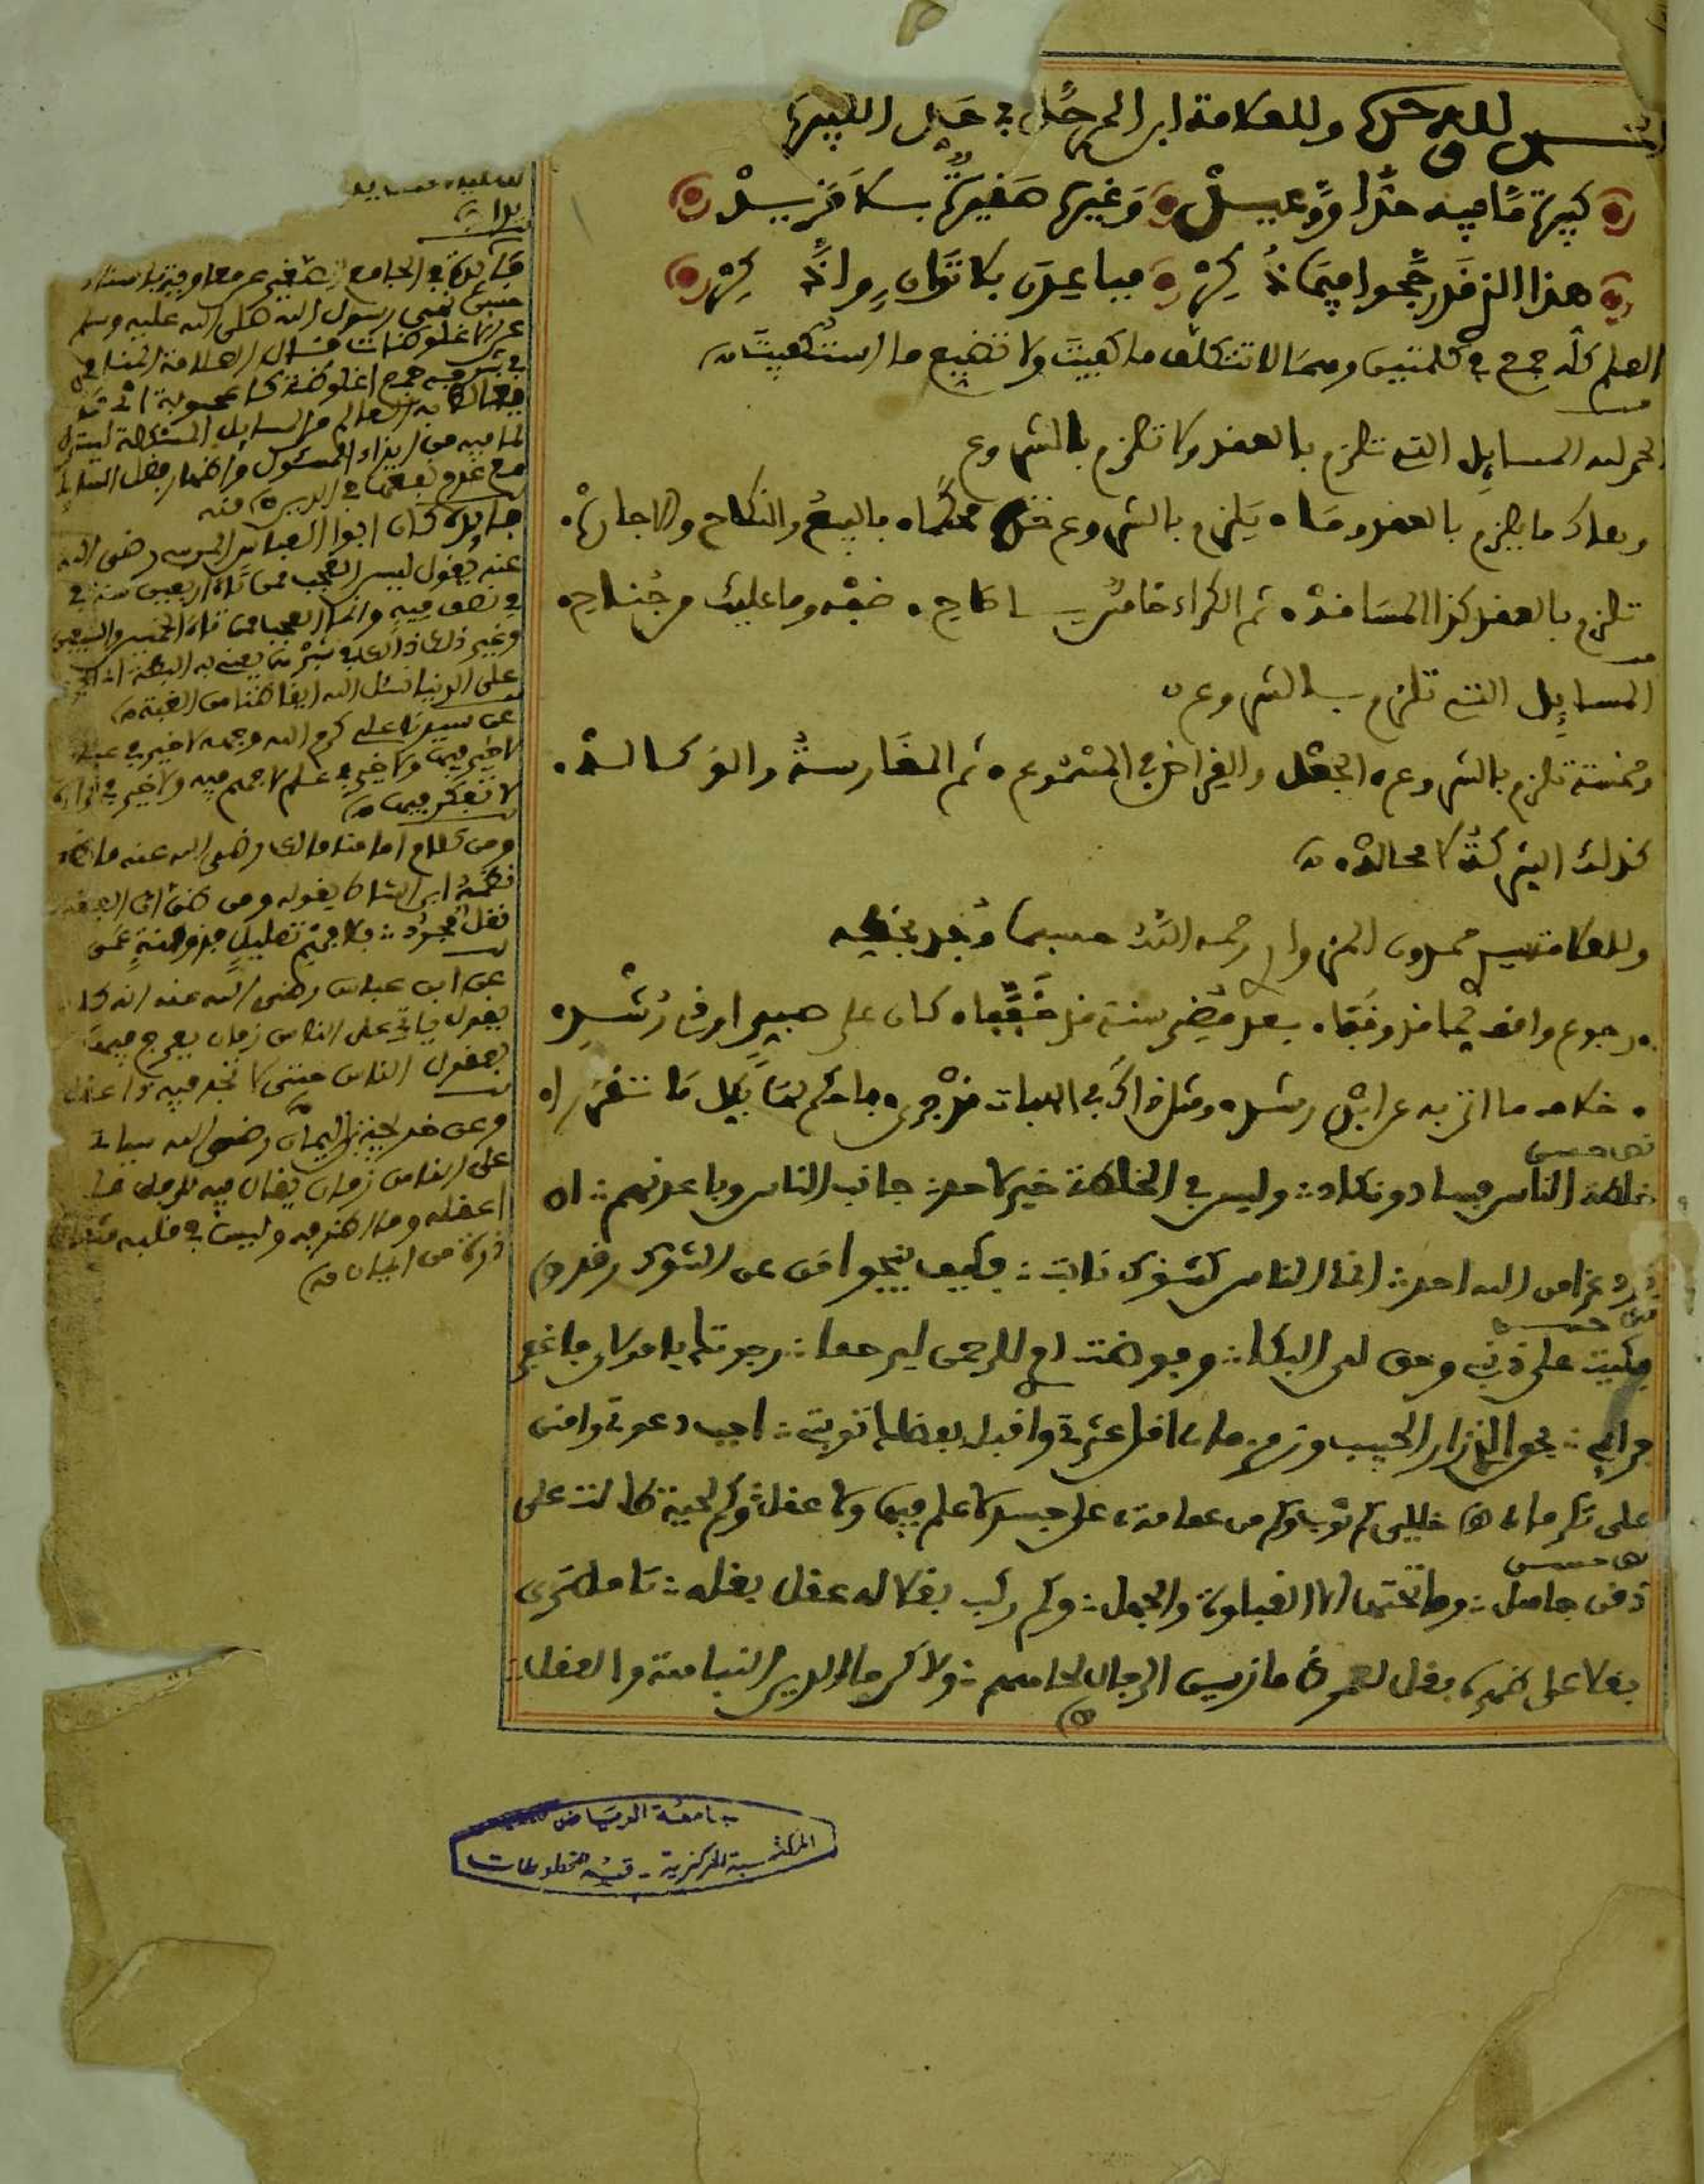 الحمد لله وحده وللعلامة ابن المرحل في حد الكبيرة
كبيرة ما فيه حد او وعيد وغيرها صغيرة بلا مزيد
هذا الذي قد رجحوا فيما ذكر فباعدن بلا توان وادكر
العلم كله جمع في كلمتين وهما لا تتكلف ما كفيت ولا تضيع ما استكفيت
الحمد لله المسايل التي تلزم بالعقد ولا تلزم بالشروع
وهاك ما يلزم بالعقد وما يلزم بالشروع خذ محكما بالبيع والنكاح والاجارة
تلزم بالعقد كذا المساقدة ثم الكراء خامس يا صاح خذه وما عليك من جناح
المسايل التي تلزم بالشروع
وخمسة تلزم بالشروع الجعل والقراض في المشموع ثم المغارسة والوكالة
كذلك الشركة لا محالة
وللعلامة سيدي حمدون المزوار رحمه الله حسبما وجد بخطه
رجوع واقف لما قد وقفا بعد مضي سنة قد خففا كان على صبي او في رشده
خلاف ما اتى به عن ابن رشد ومثل ذاك في الهبات قد جرى فاحكم لها بكل ما تقررا
نص حسن
خلطة الناس فساد ونكاد وليس في الخلطة خير لاحد جانب الناس وباعدنهم ان
تزد عزا من الله احد انما الناس كشوك نابت فكيف ينجو من عن الشوك رقد
نص حسن
بكيت على ذنبي وحق لي البكا وفوضت امري للرحمن ليرحما رجوتك يا مولاي فاغفر
جرائمي بحق الذي زار الحبيب وزمزما اقل عثرتي واقبل بفضلك توبتي اجب دعوتي وامنن
علي تكرما خليلي كم ثوب وكم من عمامة على جسد لا علم فيها ولا عقل وكم لحية طالت على
نص حسن
ذقن جاهل وما تحتها الا الغباوة والجهل وكم راكب بغلا له عقل بغله تامل ترى
بغلا على ظهره بغل لعمرك ما زين الرجال لحاهم ولا كن جمال الدين النباهة والعقل
فايدة في الجامع الصغير عن معاوية باسناد
حسن نهى رسول الله صلى الله عليه وسلم
عن الاغلوطات قال العلامة المناوي
في شرحه جمع اغلوطة كاعجوبة اي ما
يغالط به العالم من المسايل المشكلة ليستزل
لما فيه من ايذاء المسئول واظهار فضل السايل
مع عدم نفعها في الدين منه
فايدة كان ابو العباس المرسي رضي الله
عنه يقول ليس العجب ممن تاه اربعين سنة في
في نصف ميل وانما العجب ممن تاه الخمسين والستين
على الدنيا نسئل الله ايقاظنا من الغفلة
عن سيدنا علي كرم الله وجهه لا خير في عبادة
لا علم فيها ولا خير في علم لا فهم فيه ولا خير في قراءة
لا تفكر فيها
ومن كلام امامنا مالك رضي الله عنه ما
نقل مجرد فلا فهم تعليل
عن ابن عباس رضي الله عنه انه كا
يقول ياتي على الناس زمان يعرج فيه
بعقول الناس حتى لا تجد فيه ذا عقل
وعن حذيفة بن اليمان رضي الله سياتي
على الناس زمان يقال فيه للرجل ما
اعقله وما اظرفه وليس في قلبه مثقال
ذرة من ايمان
جامعة الرياض
المكتبة المركزية - قسم المخطوطات